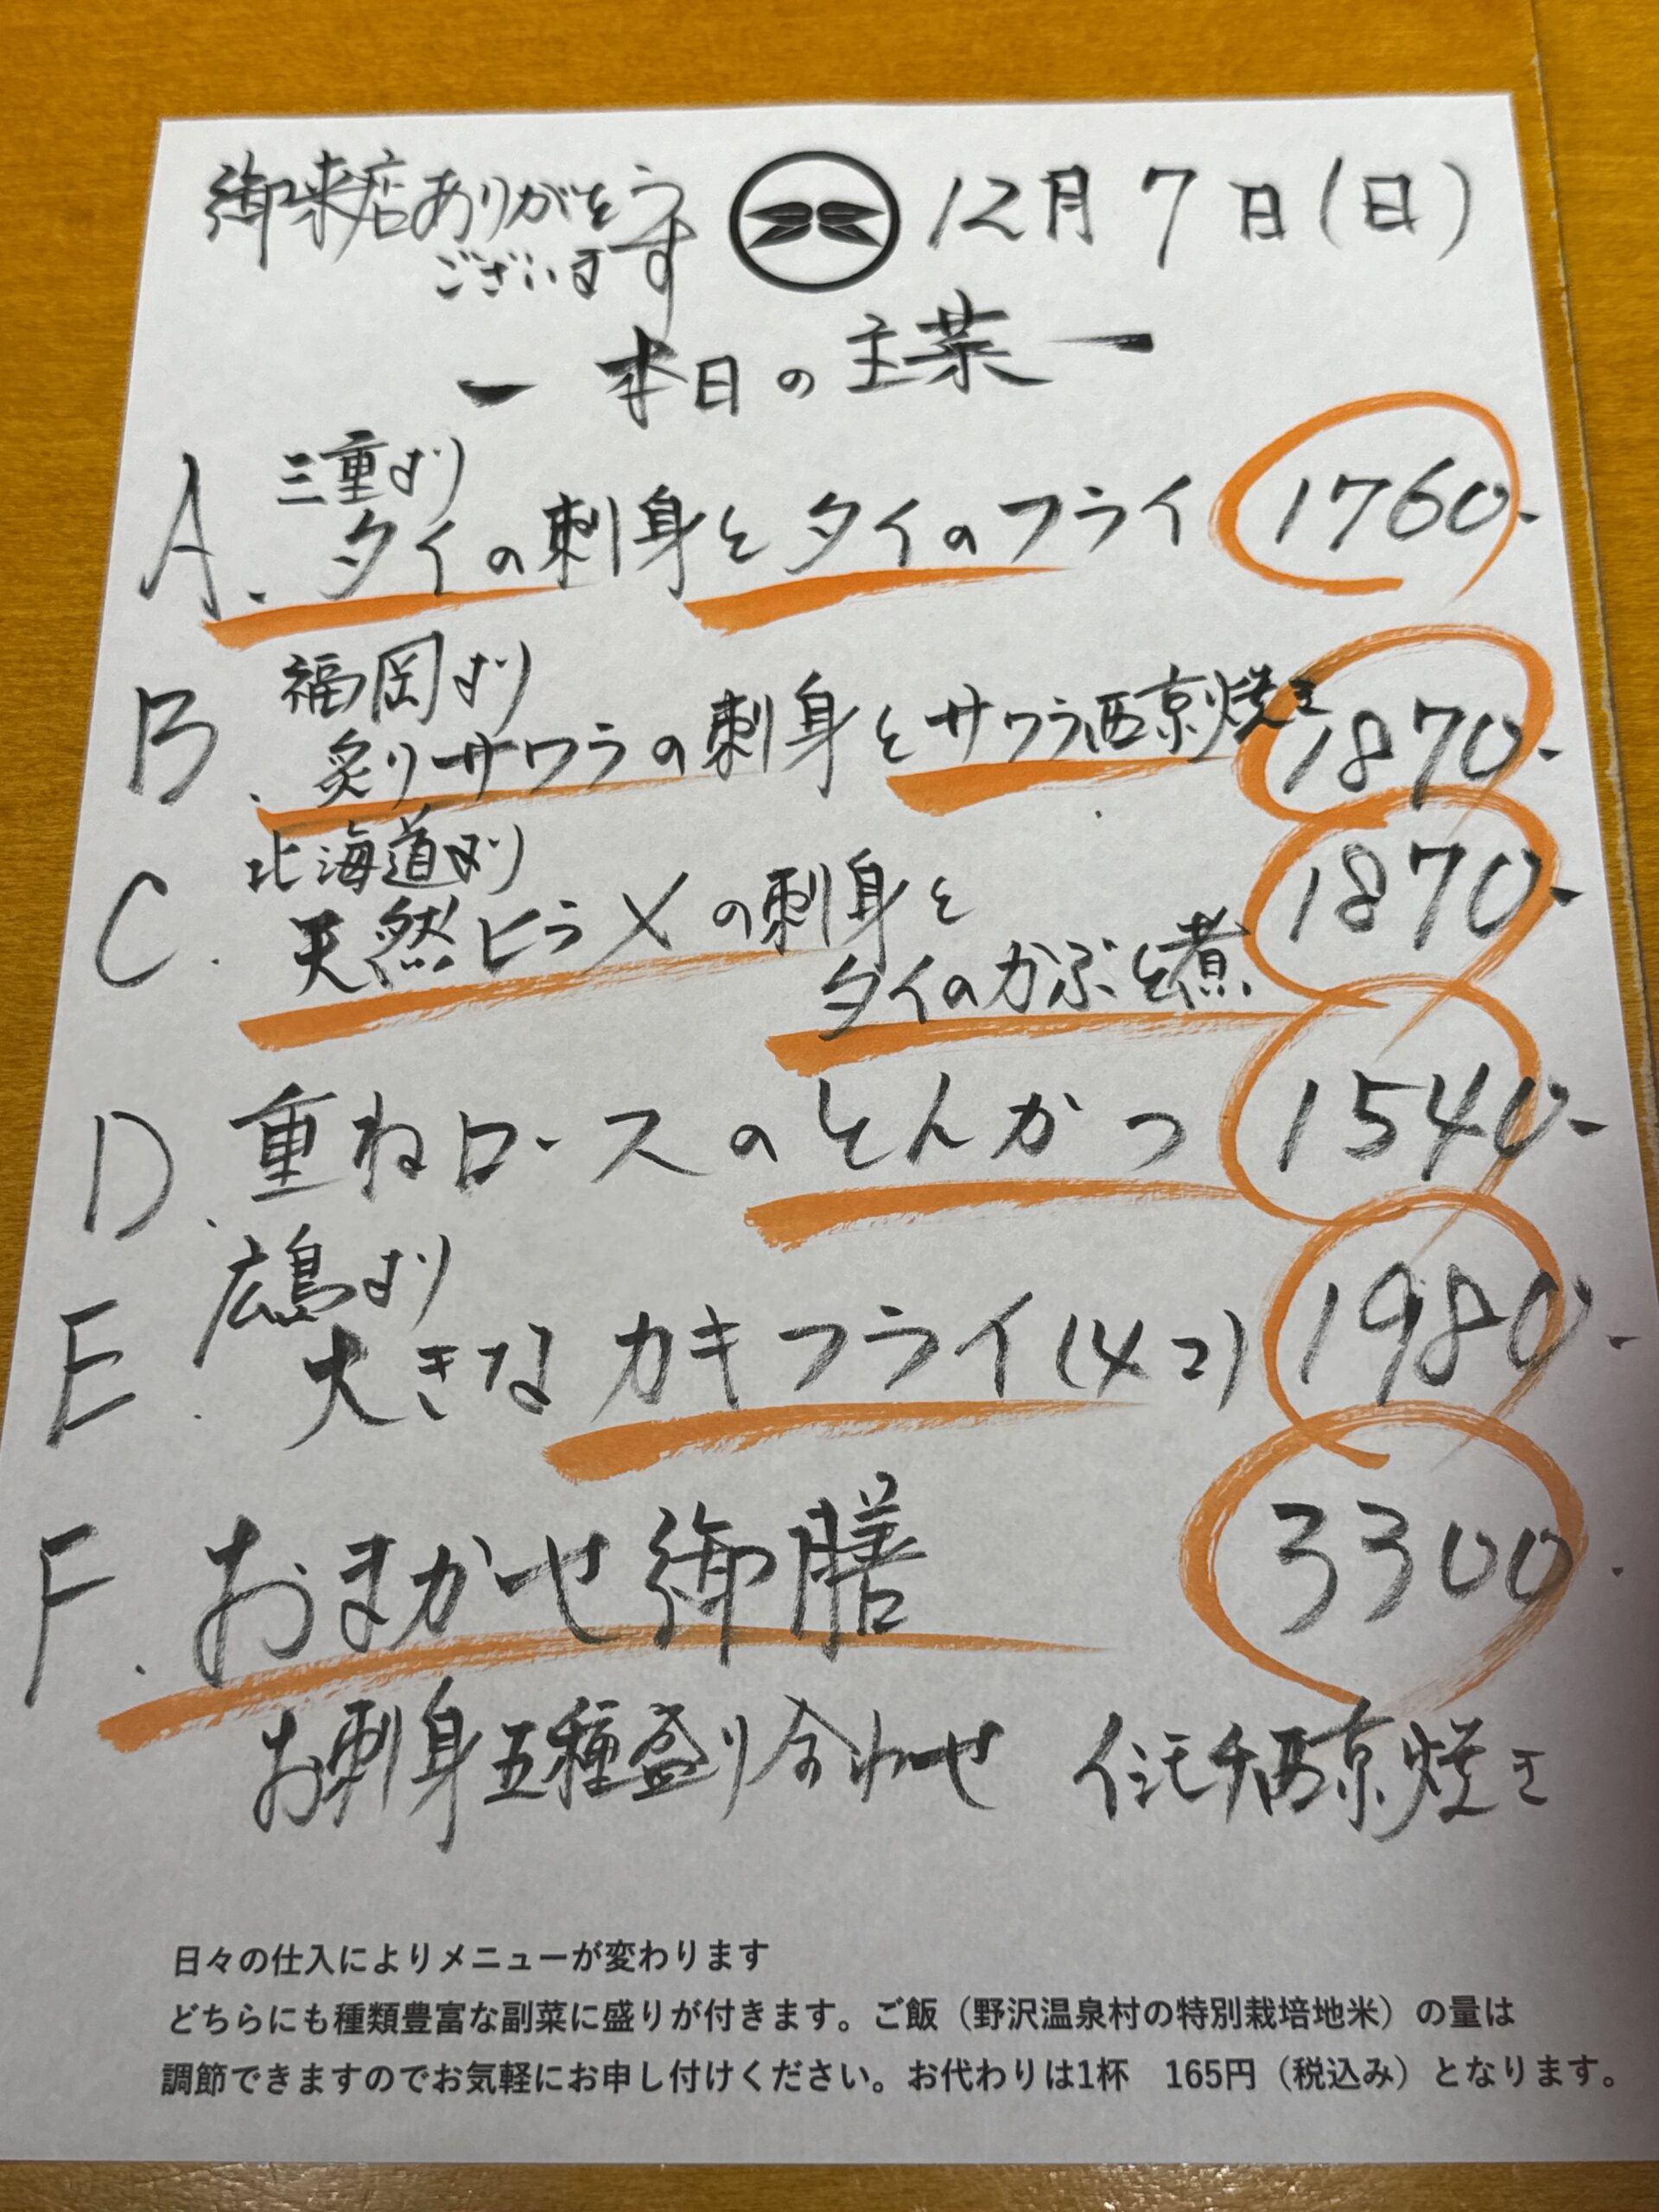 御来店ありがとう
ございます
12月7日(日)
ー本日の主菜ー
A. 三重より
タイの刺身とタイのフライ 1760-
B. 福岡より
炙りサワラの刺身とサワラ西京焼き 1870-
C. 北海道より
天然ヒラメの刺身と 1870-
タイのかぶと煮
D. 重ねロースのとんかつ 1540-
E. 広島より
大きなカキフライ(4コ) 1980-
F. おまかせ御膳 3300-
お刺身五種盛り合わせ イシモチ西京焼き
日々の仕入によりメニューが変わります
どちらにも種類豊富な副菜に盛りが付きます。ご飯(野沢温泉村の特別栽培地米)の量は
調節できますのでお気軽にお申し付けください。お代わりは1杯 165円(税込み)となります。